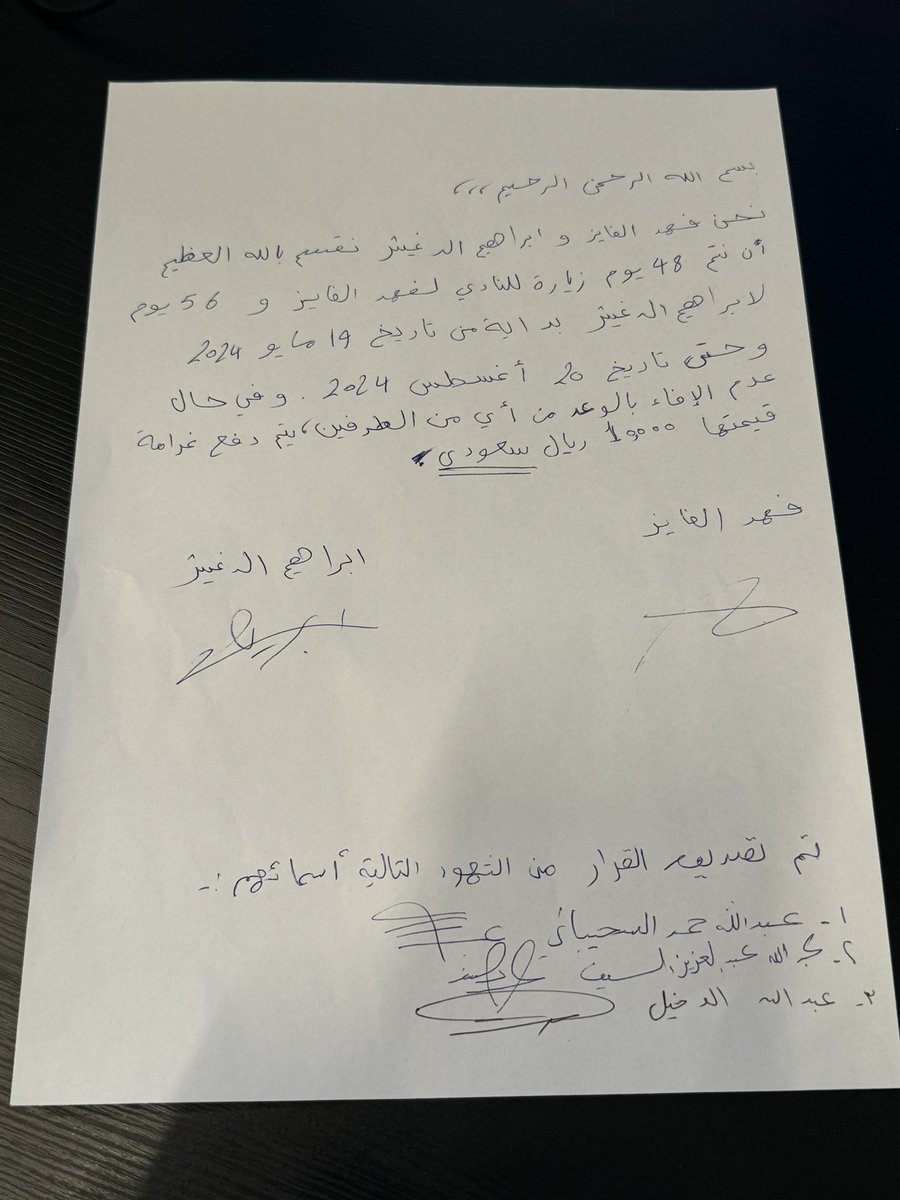 بسم الله الرحمن الرحيم ,,,
نحن فهد الفايز و ابراهيم الدغيثر نقسم بالله العظيم
أن نتم 48 يوم زيارة للنادي لفهد الفايز و 56 يوم
لابراهيم الدغيثر بداية من تاريخ 19 مايو 2024
وحتى تاريخ 20 أغسطس 2024 . وفي حال
عدم الإفاء بالوعد من أي من الطرفين، يتم دفع غرامة
قيمتها 10000 ريال سعودي.
فهد الفايز
ابراهيم الدغيثر
تم تصديق القرار من الشهود التالية أسمائهم :-
١- عبدالله حمد السحيباني
٢- عبدالله عبدالعزيز السيف
٣- عبدالله الدخيل